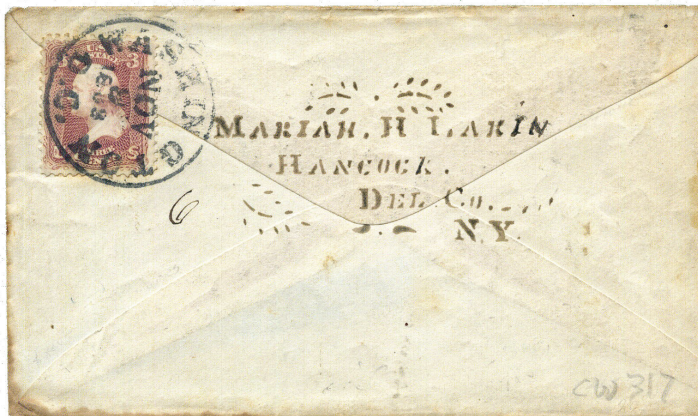 WASHINGTON D.C.
NOV
1863
3
MARIAH. H LAKIN
HANCOCK.
DEL CO.
N.Y.
6
CW 317